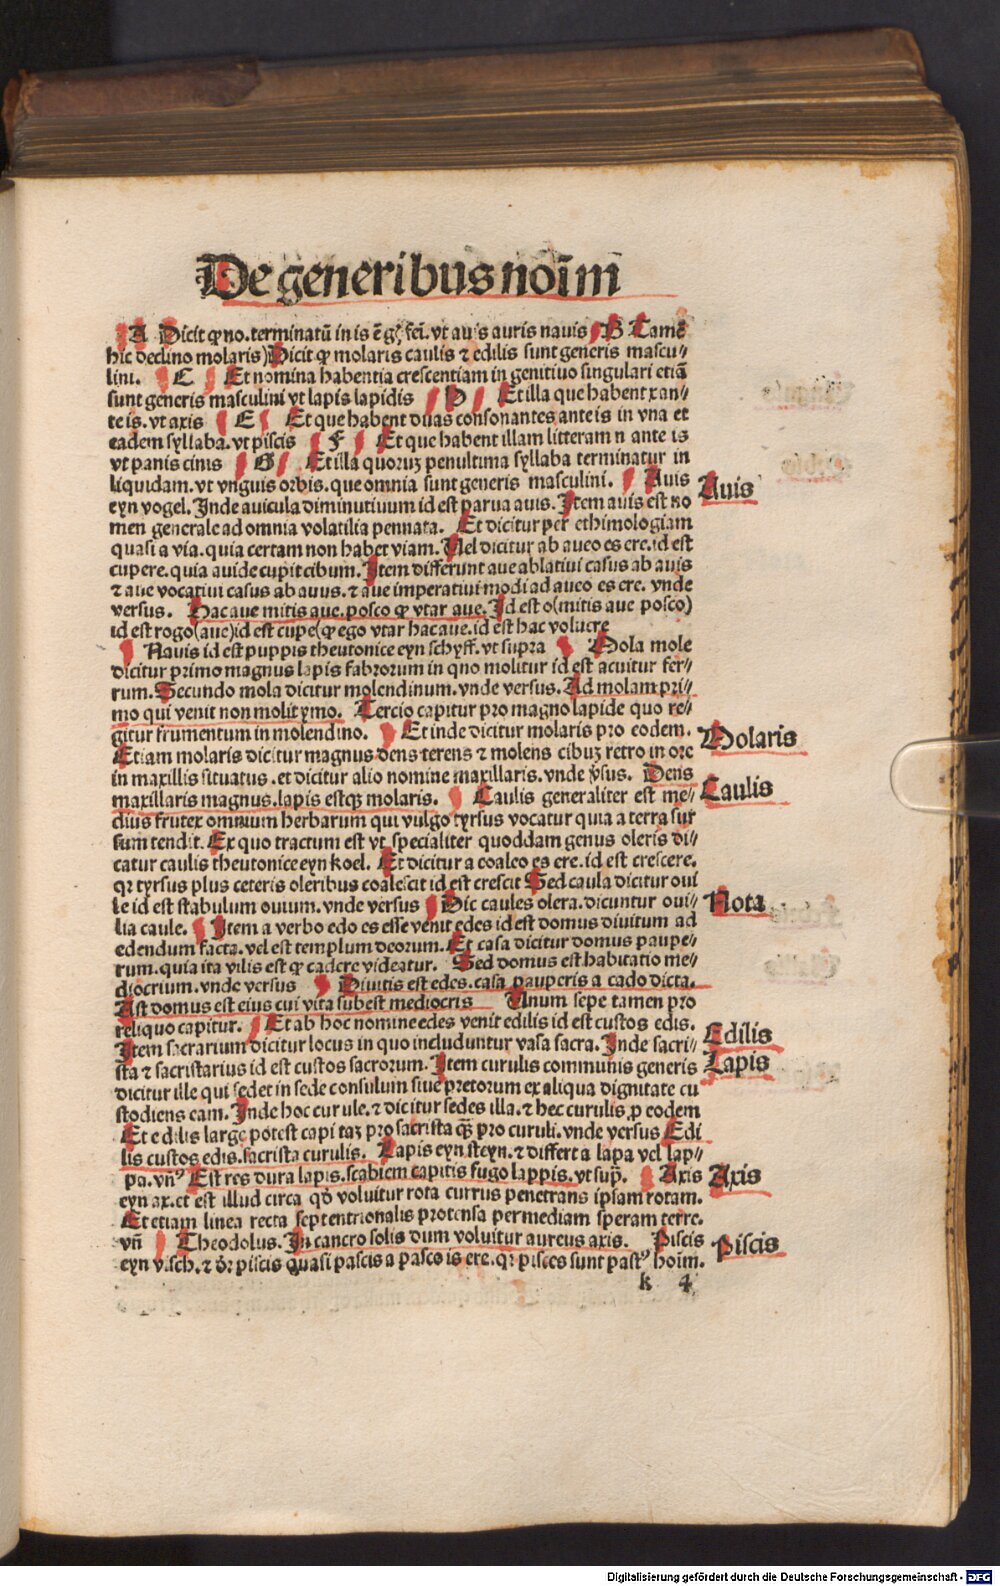 De generibus noīm
A Dicit ꝙ no. terminatū in is ē gͥs fēi. vt auis auris nauis B Tamē
hic declino molaris) Dicit ꝙ molaris caulis ⁊ edilis sunt generis mascu⸗
lini. C Et nomina habentia crescentiam in genitiuo singulari etiā
sunt generis masculini vt lapis lapidis D Et illa que habent x an⸗
te is. vt axis E Et que habent duas consonantes ante is in vna et
eadem syllaba. vt piscis F Et que habent illam litteram n ante is
vt panis cinis G Et illa quoruz penultima syllaba terminatur in
liquidam. vt vnguis orbis. que omnia sunt generis masculini. Auis
Auis
eyn vogel. Inde auicula diminutiuum id est parua auis. Item auis est no
men generale ad omnia volatilia pennata. Et dicitur per ethimologiam
quasi a via. quia certam non habet viam. Uel dicitur ab aueo es ere. id est
cupere. quia auide cupit cibum. Item differunt aue ablatiui casus ab auis
⁊ aue vocatiui casus ab auus. ⁊ aue imperatiui modi ad aueo es ere. vnde
versus. Hac aue mitis aue. posco ꝙ vtar aue. Id est o(mitis aue posco)
id est rogo(aue)id est cupe(ꝙ ego vtar hac aue. id est hac volucre
Nauis id est puppis theutonice eyn schyff. vt supra Mola mole
dicitur primo magnus lapis fabrorum in quo molitur id est acuitur fer⸗
rum. Secundo mola dicitur molendinum. vnde versus. Ad molam pri⸗
mo qui venit non molit ymo. Tercio capitur pro magno lapide quo re⸗
gitur frumentum in molendino. Et inde dicitur molaris pro eodem.
Molaris
Etiam molaris dicitur magnus dens terens ⁊ molens cibuz retro in ore
in maxillis situatus. et dicitur alio nomine maxillaris. vnde ꝟsus. Dens
maxillaris magnus. lapis estqꝫ molaris. Caulis generaliter est me⸗
Caulis
dius frutex omnium herbarum qui vulgo tyrsus vocatur quia a terra sur
sum tendit. Ex quo tractum est vt specialiter quoddam genus oleris di⸗
catur caulis theutonice eyn koel. Et dicitur a coaleo es ere. id est crescere.
qꝛ tyrsus plus ceteris oleribus coalescit id est crescit Sed caula dicitur oui
le id est stabulum ouium. vnde versus Dic caules olera. dicuntur oui⸗
Nota
lia caule. Item a verbo edo es esse venit edes id est domus diuitum ad
edendum facta. vel est templum deorum. Et casa dicitur domus paupe⸗
rum. quia ita vilis est ꝙ cadere videatur. Sed domus est habitatio me⸗
diocrium. vnde versus Diuitis est edes. casa pauperis a cado dicta.
Ast domus est eius cui vita subest mediocris Unum sepe tamen pro
reliquo capitur. Et ab hoc nomine edes venit edilis id est custos edis.
Edilis
Item sacrarium dicitur locus in quo includuntur vasa sacra. Inde sacri⸗
sta ⁊ sacristarius id est custos sacrorum. Item curulis communis generis
Lapis
dicitur ille qui sedet in sede consulum siue pretorum ex aliqua dignitate cu
stodiens eam. Inde hoc curule. ⁊ dicitur sedes illa. ⁊ hec curulis ꝓ eodem
Et edilis large potest capi taz pro sacrista qꝫ̄ pro curuli. vnde versus Edi
lis custos edis. sacrista curulis. Lapis eyn steyn. ⁊ differt a lapa vel lap⸗
pa. vnꝰ Est res dura lapis. scabiem capitis fugo lappis. vt supͣ. Axis
Axis
eyn ax. et est illud circa qd̓ voluitur rota currus penetrans ipsam rotam.
Et etiam linea recta septentrionalis protensa per mediam speram terre.
vn̄ Theodolus. In cancro solis dum voluitur aureus axis. Piscis
Piscis
eyn visch. ⁊ dr̄ piscis quasi pascis a pasco is ere. qꝛ pisces sunt pastꝰ hoīm.
k 4
Digitalisierung gefördert durch die Deutsche Forschungsgemeinschaft - DFG